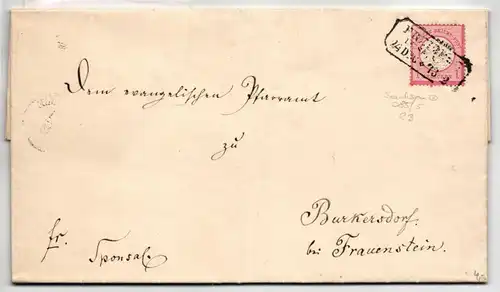 Dem evangelischen Pfarramt
zu
Burkersdorf.
bei Frauenstein.
fr.
Sponsal.